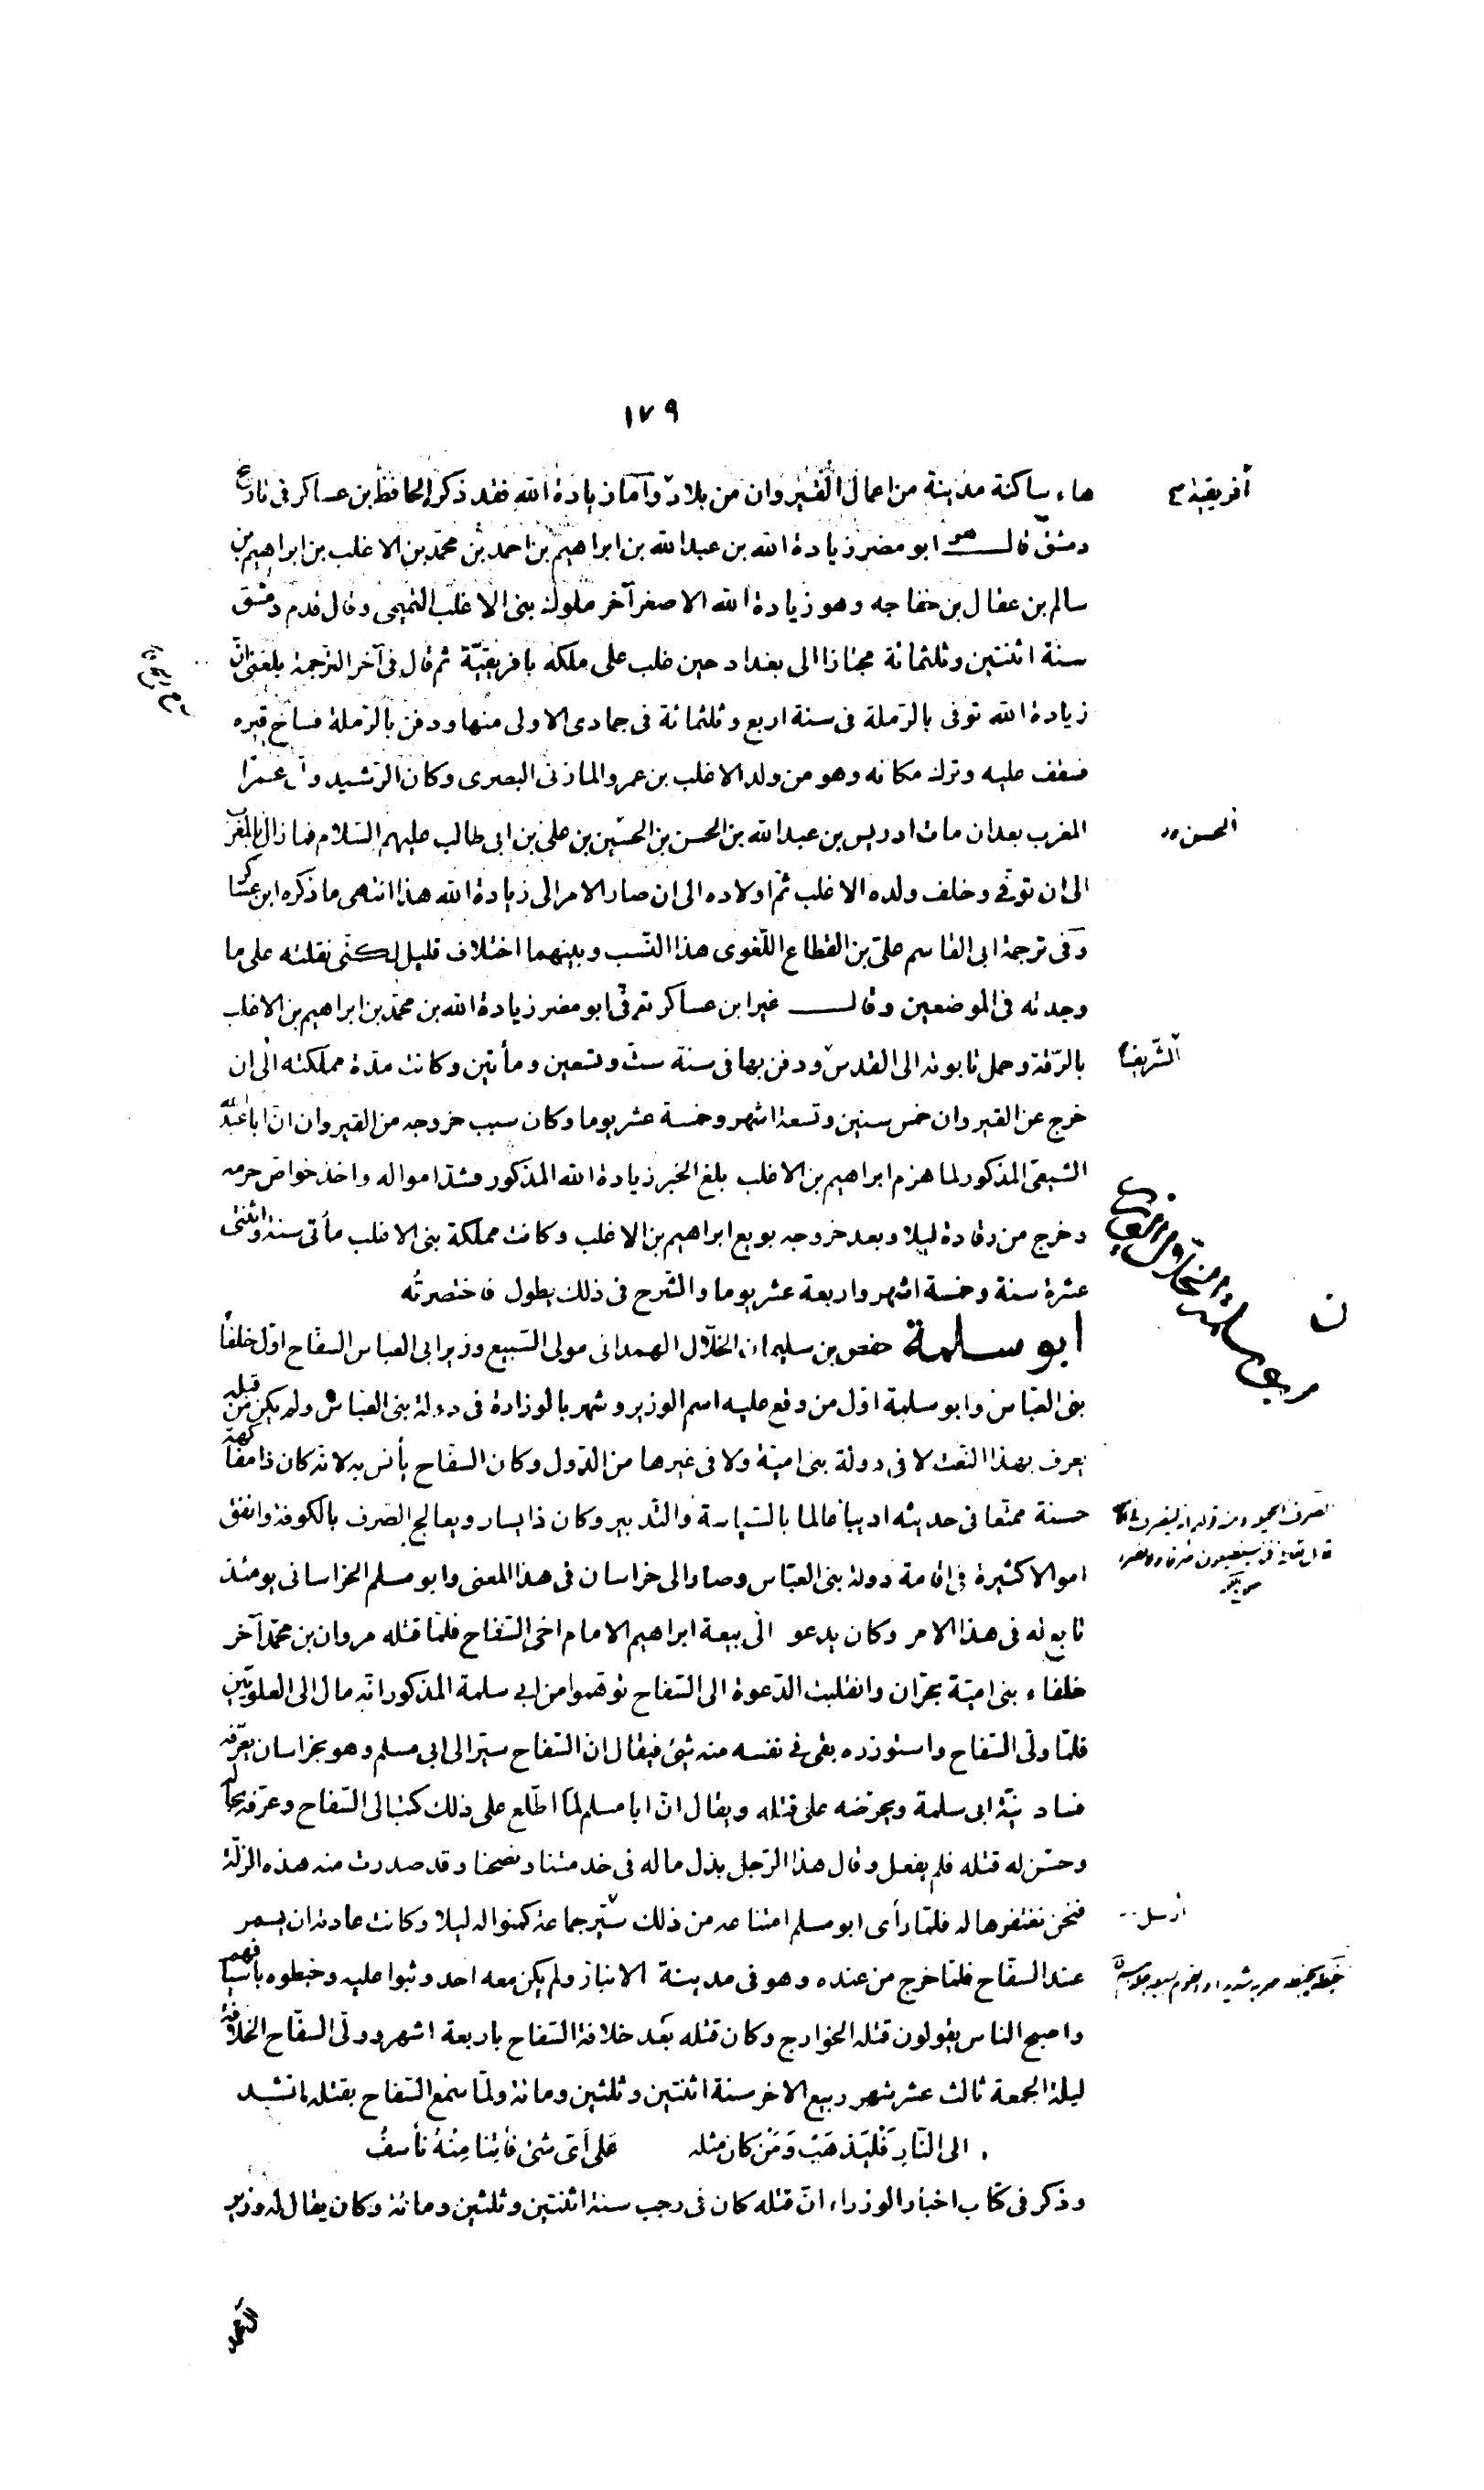 ١٧٩
هاء ساكنة مدينة من اعمال القيروان من بلاد وآما زيادة الله فقد ذكره الحافظ بن عساكر فى تاريخ
افريقية
دمشق قال هو ابو مضر زيادة الله بن عبدالله بن ابراهيم بن احمد بن محمد بن الاغلب بن ابراهيم بن
سالم بن عقال بن خفاجه وهو زيادة الله الاصغر آخر ملوك بنى الاغلب التميمى وقال قدم دمشق
سنة اثنتين وثلثمائة مجتازا الى بغداد حين غلب على ملكه بافريقيّة ثم قال فى آخر الترجمة بلغنى ان
زيادة الله توفى بالرّملة فى سنة اربع وثلثمائة فى جمادى الاولى منها ودفن بالرّملة فساخ قبره
فسقف عليه وترك مكانه وهو من ولد الاغلب بن عمرو المازنى البصرى وكان الرّشيد ولى عمرًا
المغرب بعد ان مات ادريس بن عبدالله بن الحسن بن الحسين بن على بن ابى طالب عليهم السّلام فما زال بالمغرب
الحسن
الى ان توفى وخلف ولده الاغلب ثمّ اولاده الى ان صار الامر الى زيادة الله هذا انتهى ما ذكره ابن عساكر
وفى ترجمة ابى القاسم علىّ بن القطاع اللّغوى هذا النّسب وبينهما اختلاف قليل لكنّى نقلته على ما
وجدته فى الموضعين وقال غير ابن عساكر توفّى ابو مضر زيادة الله بن محمّد بن ابراهيم بن الاغلب
بالرّقة وحمل تابوته الى القدس ودفن بها فى سنة ستّ وتسعين ومأتين وكانت مدّة مملكته الى ان
الشّريف
خرج عن القيروان خمس سنين وتسعة اشهر وخمسة عشر يوما وكان سبب خروجه من القيروان انّ ابا عبدالله
الشيعىّ المذكور لما هزم ابراهيم بن الاغلب بلغ الخبر زيادة الله المذكور فشدّ امواله واخذ خواصّ حرمه
وخرج من رقادة ليلا وبعد خروجه بويع ابراهيم بن الاغلب وكانت مملكة بنى الاغلب مأتى سنة واثنتى
عشرة سنة وخمسة اشهر واربعة عشر يوما والشّرح فى ذلك يطول فاختصرتُه
ابو سلمة حفص بن سليمان الخلّال الهمدانى مولى السّبيع وزير ابى العباس السفّاح اوّل خلفاء
بنى العبّاس وابو سلمة اوّل من وقع عليه اسم الوزير وشهر بالوزارة فى دولة بنى العبّاس ولم يكن من قبله
يعرف بهذا النّعت لا فى دولة بنى اميّة ولا فى غيرها من الدّول وكان السفّاح يأنس به لانّه كان ذا مفاكهة
حسنة ممتّعا فى حديثه اديبا عالما بالسّياسة والتّدبير وكان ذا يسار ويعالج الصّرف بالكوفة وانفق
اموالا كثيرة فى اقامة دولة بنى العبّاس وصار الى خراسان فى هذا المعنى وابو مسلم الخراسانى يومئذ
تابع له فى هذا الامر وكان يدعو الى بيعة ابراهيم الامام اخى السّفاح فلمّا قتله مروان بن محمّد آخر
خلفاء بنى اميّة بحرّان وانقلبت الدّعوة الى السّفاح توهّموا من ابى سلمة المذكور انّه مال الى العلويّين
فلمّا ولّى السّفاح واستوزره بقى فى نفسه منه شئ فيقال انّ السّفاح سيّر الى ابى مسلم وهو بخراسان يعرّفه
فساد نيّة ابى سلمة ويحرّضه على قتله ويقال انّ ابا مسلم لمّا اطّلع على ذلك كتب الى السّفاح وعرّفه بحاله
وحسّن له قتله فلم يفعل وقال هذا الرّجل بذل ماله فى خدمتنا ونصحنا وقد صدرت منه هذه الزّلّة
فنحن نغتفرها له فلمّا رأى ابو مسلم امتناعه من ذلك سيّر جماعة كمنوا له ليلا وكانت عادته ان يسمر
ارسل
عند السفّاح فلمّا خرج من عنده وهو فى مدينة الانبار ولم يكن معه احد وثبوا عليه وخبطوه باسيافهم
واصبح الناس يقولون قتله الخوارج وكان قتله بعد خلافة السّفاح باربعة اشهر وولّى السفّاح الخلافة
ليلة الجمعة ثالث عشر شهر ربيع الاخر سنة اثنتين وثلثين ومائة ولمّا سمع السّفاح بقتله انشد
الى النّارِ فَلْيَذهَبْ وَمَنْ كان مثله عَلى اَىّ شئ فاتنا مِنْهُ نأسفُ
وذكر فى كتاب اخبار الوزراء انّ قتله كان فى رجب سنة اثنتين وثلثين ومائة وكان يقال له وزير